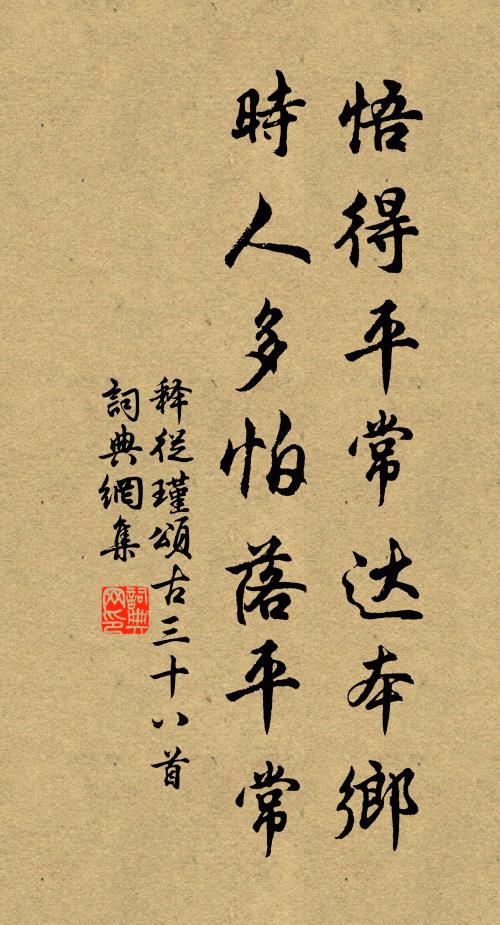 悟得平常达本鄉
時人多怕落平常
释從瑾頌古三十八首
詞典網集
詞典网印